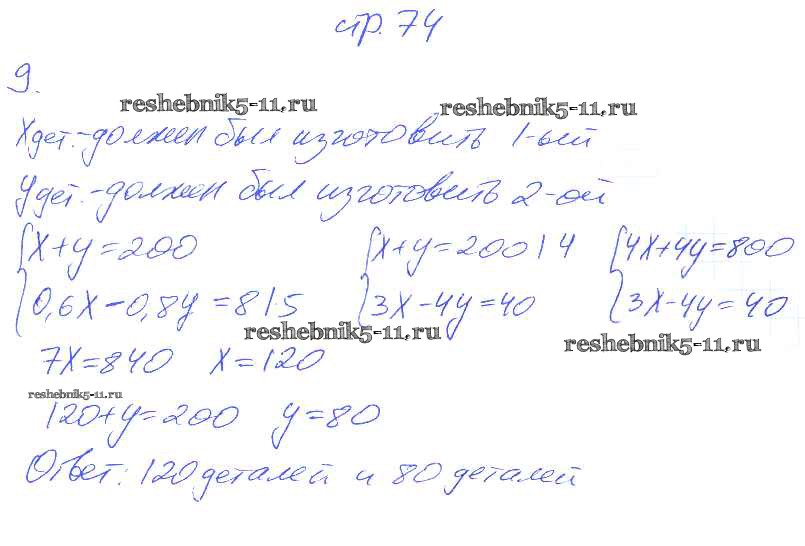 стр. 74
9.
reshebnik5-11.ru reshebnik5-11.ru
X дет.-должен был изготовить 1-ый
y дет.-должен был изготовить 2-ой
{X+y=200 {X+y=200 | 4 {4X+4y=800
0,6X-0,8y=8 | 5 3X-4y=40 3X-4y=40
reshebnik5-11.ru reshebnik5-11.ru
7X=840 X=120
reshebnik5-11.ru
120+y=200 y=80
Ответ: 120 деталей и 80 деталей